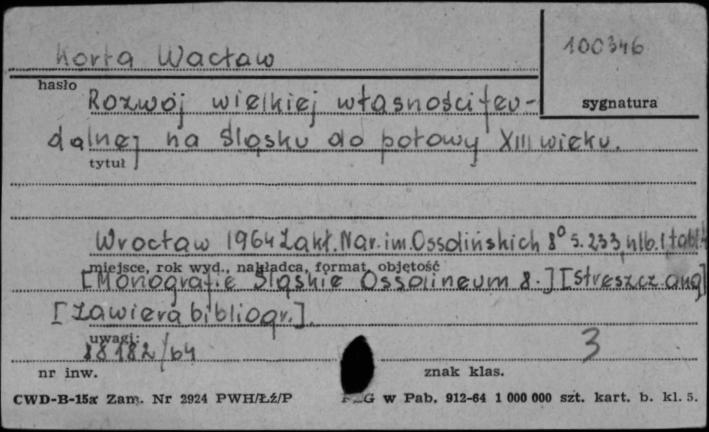 Korta Wacław
100346
hasło
sygnatura
Rozwój wielkiej własności feu-
dalnej na Śląsku do połowy XIII wieku.
tytuł
Wrocław 1964 Zakł. Nar. im. Ossolińskich 8° s. 233, nlb. 1 tabl.
miejsce, rok wyd., nakładca, format, objętość
[Monografie Śląskie Ossolineum 8.] [Streszcz. ang]
[Zawiera bibliogr.].
uwagi:
88182/64
3
nr inw.
znak klas.
CWD-B-15a Zam. Nr 2924 PWH/Łź/P w Pab. 912-64 1 000 000 szt. kart. b. kl. 5.